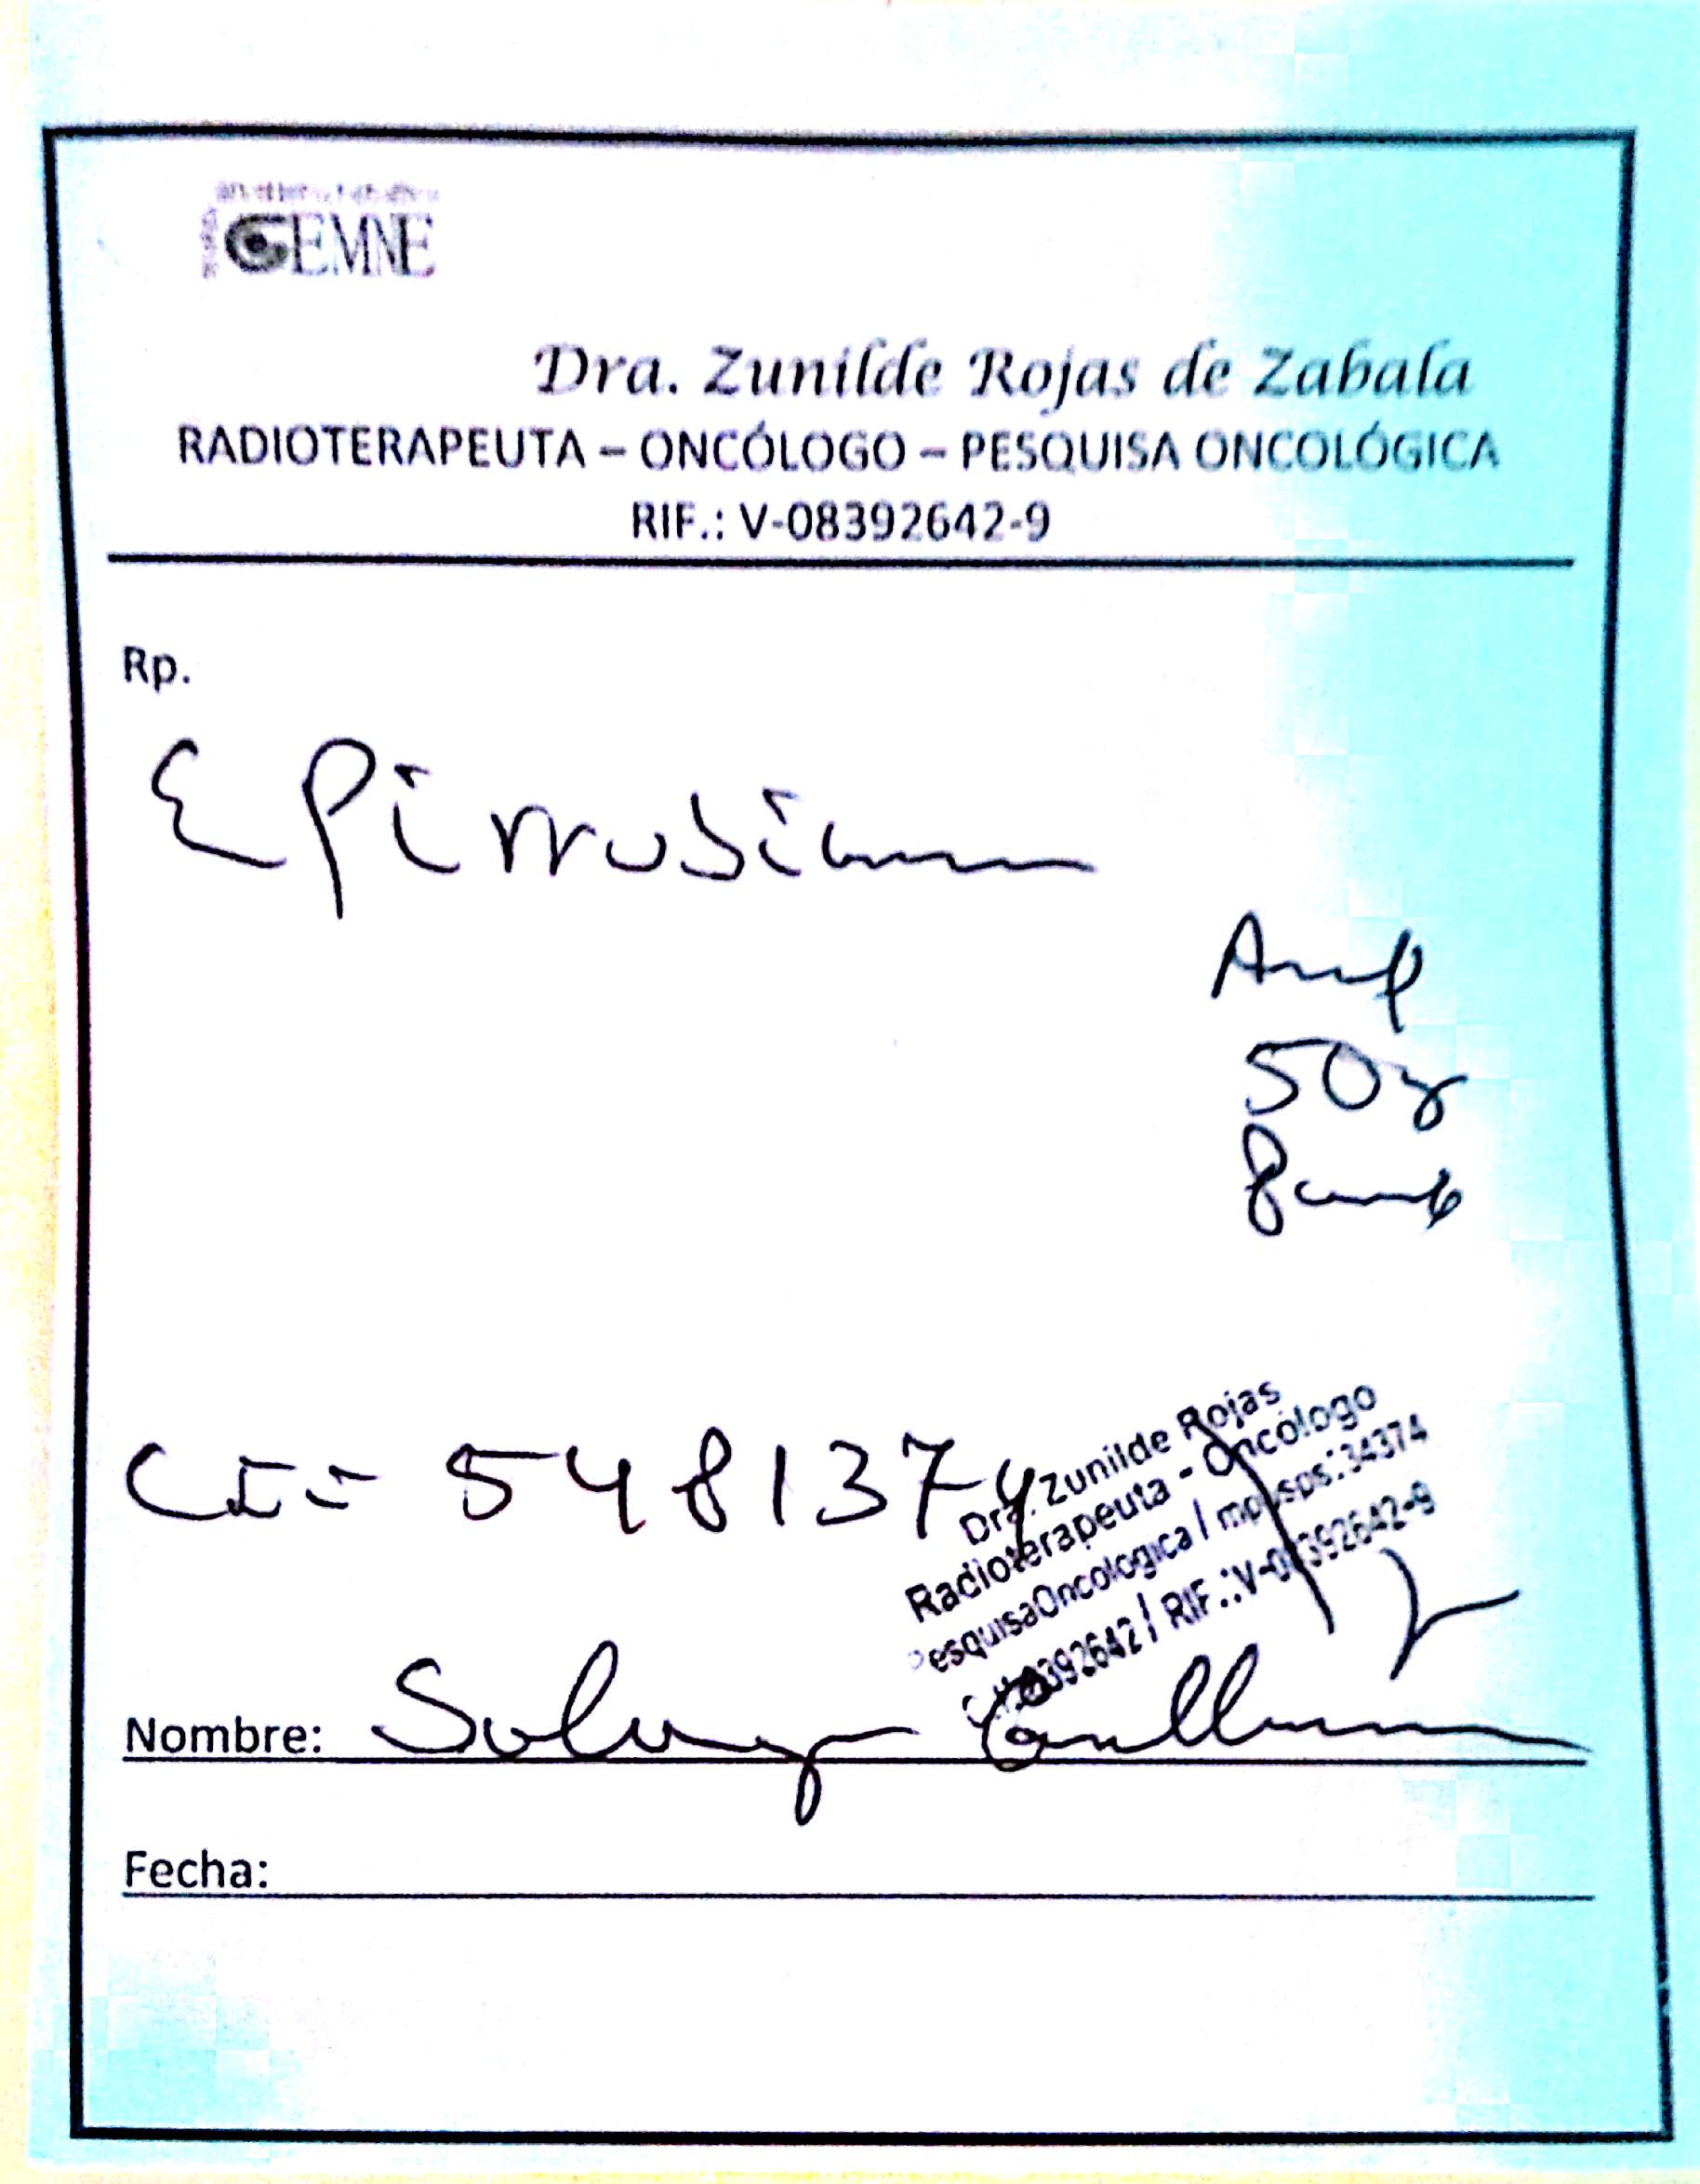 GEMNE
Dra. Zunilde Rojas de Zabala
RADIOTERAPEUTA – ONCÓLOGO – PESQUISA ONCOLÓGICA
RIF.: V-08392642-9
Rp.
Epirrubicina
Amp
50
CI= 5481374
Dra. Zunilde Rojas
Radioterapeuta - Oncólogo
PesquisaOncologica / mpps: 34374
392642 / RIF.: V-08392642-9
Nombre:
Fecha: